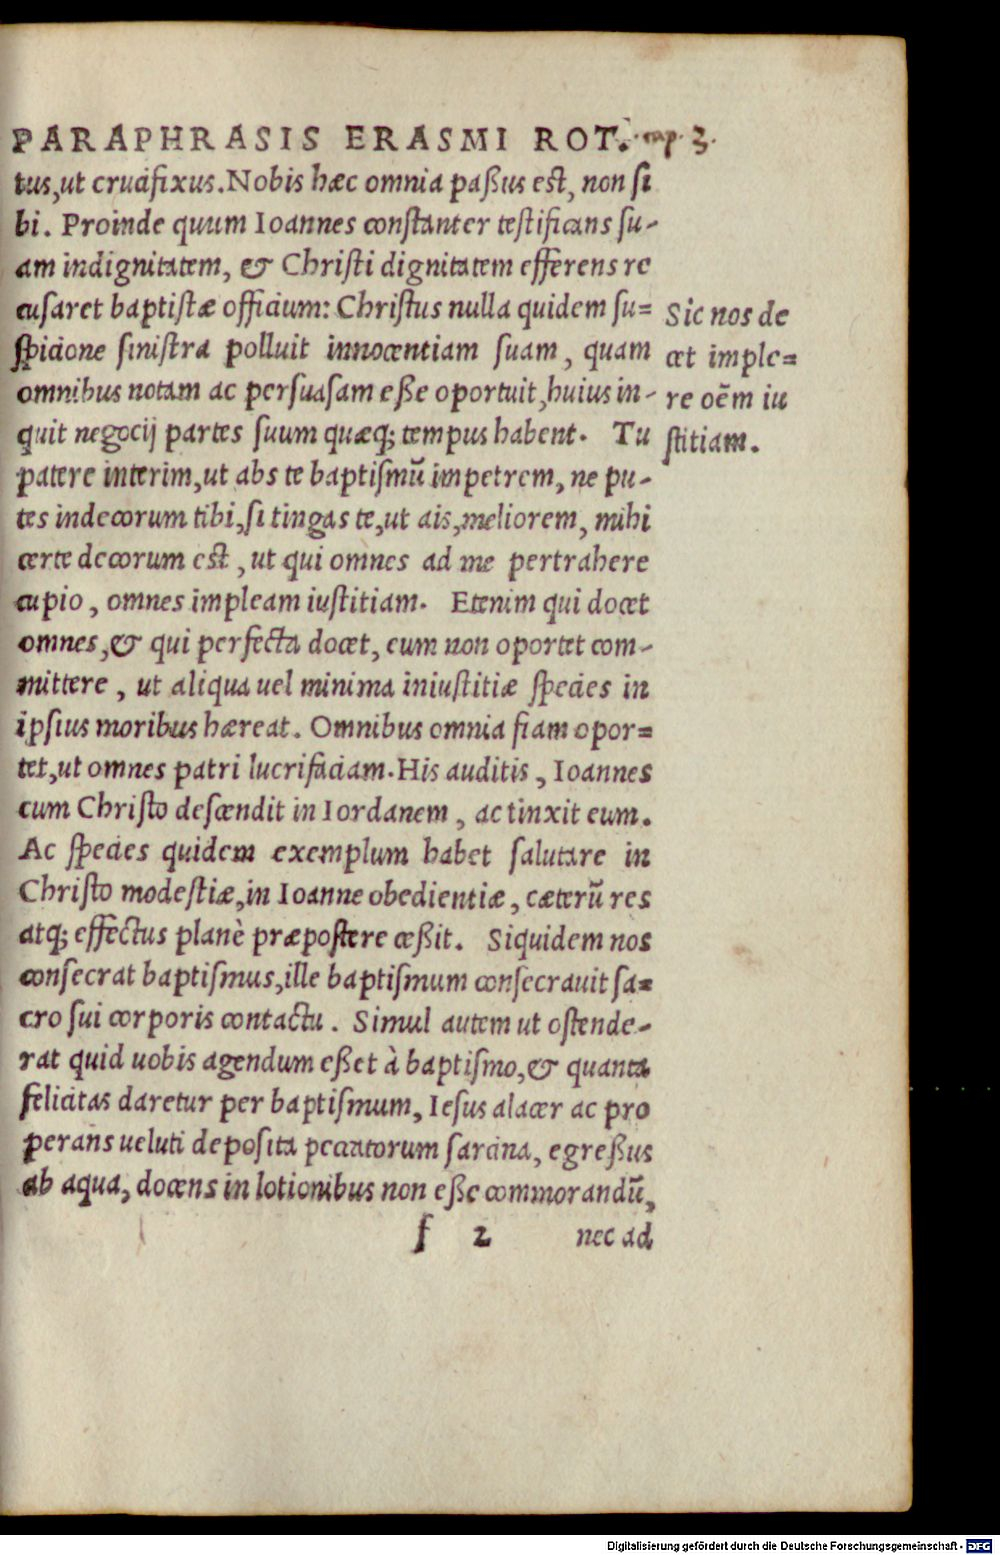 PARAPHRASIS ERASMI ROT. cap. 3.
tus,ut crucifixus.Nobis hæc omnia paßus est, non si
bi. Proinde quum Ioannes constanter testificans su-
am indignitatem, & Christi dignitatem efferens re
cusaret baptistæ officium: Christus nulla quidem su=
spicione sinistra polluit innocentiam suam, quam
omnibus notam ac persuasam eße oportuit,huius in-
quit negocij partes suum quæq; tempus habent. Tu
patere interim,ut abs te baptismũ impetrem, ne pu-
tes indecorum tibi,si tingas te,ut ais,meliorem, mihi
certe decorum est, ut qui omnes ad me pertrahere
cupio, omnes impleam iustitiam. Etenim qui docet
omnes,& qui perfecta docet, eum non oportet com-
mittere, ut aliqua uel minima iniustitiæ species in
ipsius moribus hæreat. Omnibus omnia fiam opor=
tet,ut omnes patri lucrifaciam.His auditis, Ioannes
cum Christo descendit in Iordanem, ac tinxit eum.
Ac species quidem exemplum habet salutare in
Christo modestiæ,in Ioanne obedientiæ, cæterũ res
atq; effectus planè præpostere ceßit. Siquidem nos
consecrat baptismus,ille baptismum consecrauit sa=
cro sui corporis contactu. Simul autem ut ostende-
rat quid uobis agendum eßet à baptismo,& quanta
felicitas daretur per baptismum, Iesus alacer ac pro
perans ueluti deposita peccatorum sarcina, egreßus
ab aqua, docens in lotionibus non eße commorandũ,
f 2 nec ad
Sic nos de
cet imple=
re oẽm iu
stitiam.
Digitalisierung gefördert durch die Deutsche Forschungsgemeinschaft - DFG